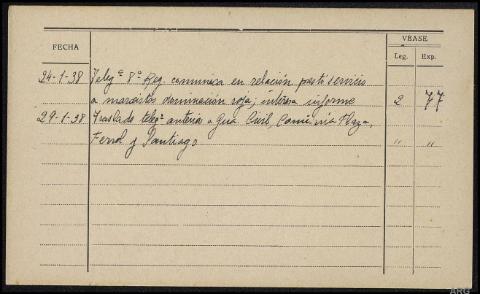 FECHA
VÉASE
Leg. Exp.
24-1-38 Telegª 8ª Reg. comunica en relación prestó servicio
a marxistas dominación roja, interesa informe 2 77
29-1-38 Traslado telegª anterior a Gua Civil, Comisaría Plaza,
Ferrol y Santiago " "
ARG